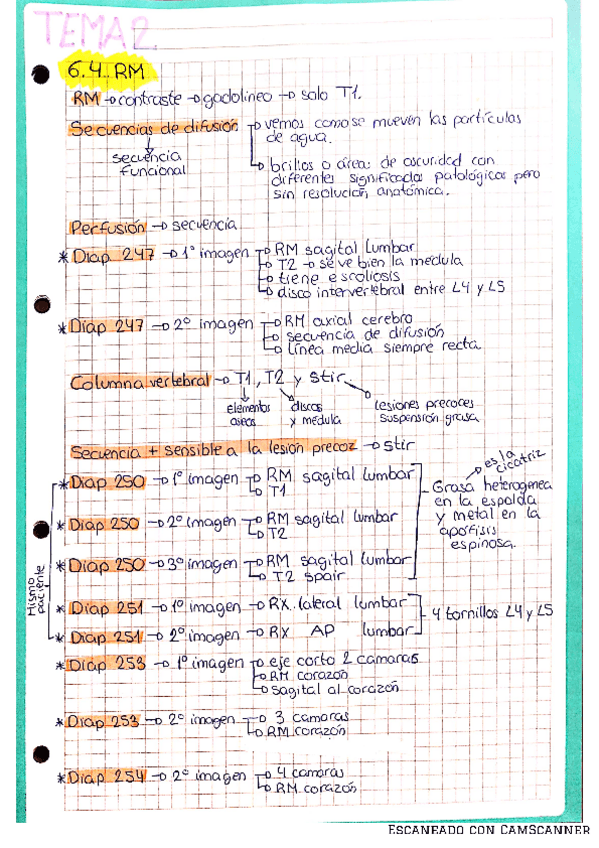 TEMA 2
6.4. RM
RM → contraste → gadolineo → solo T1.
Secuencias de difusión → vemos como se mueven las partículas
de agua.
secuencia
funcional
→ brillos o áreas de oscuridad con
diferentes significados patológicos pero
sin resolución anatómica.
Perfusión → secuencia
* Diap 247 → 1º imagen → RM sagital lumbar
→ T2 → se ve bien la médula
→ tiene escoliosis
→ disco intervertebral entre L4 y L5
* Diap 247 → 2º imagen → RM axial cerebro
→ secuencia de difusión
→ línea media siempre recta
Columna vertebral → T1, T2 y stir
elementos
oseos
discos
y médula
lesiones precoces
suspensión grasa
Secuencia + sensible a la lesión precoz → stir
* Diap 250 → 1º imagen → RM sagital lumbar
→ T1
* Diap 250 → 2º imagen → RM sagital lumbar
→ T2
* Diap 250 → 3º imagen → RM sagital lumbar
→ T2 spair
→ es la
cicatriz
Grasa heterogenea
en la espalda
y metal en la
apófisis
espinosa.
* Diap 251 → 1º imagen → RX lateral lumbar
* Diap 251 → 2º imagen → RX AP lumbar
4 tornillos L4 y L5
Mismo
paciente
* Diap 253 → 1º imagen → eje corto 2 camaras
→ RM corazón
→ sagital al corazón
* Diap 253 → 2º imagen → 3 camaras
→ RM corazón
* Diap 254 → 2º imagen → 4 camaras
→ RM corazón
Escaneado con CamScanner